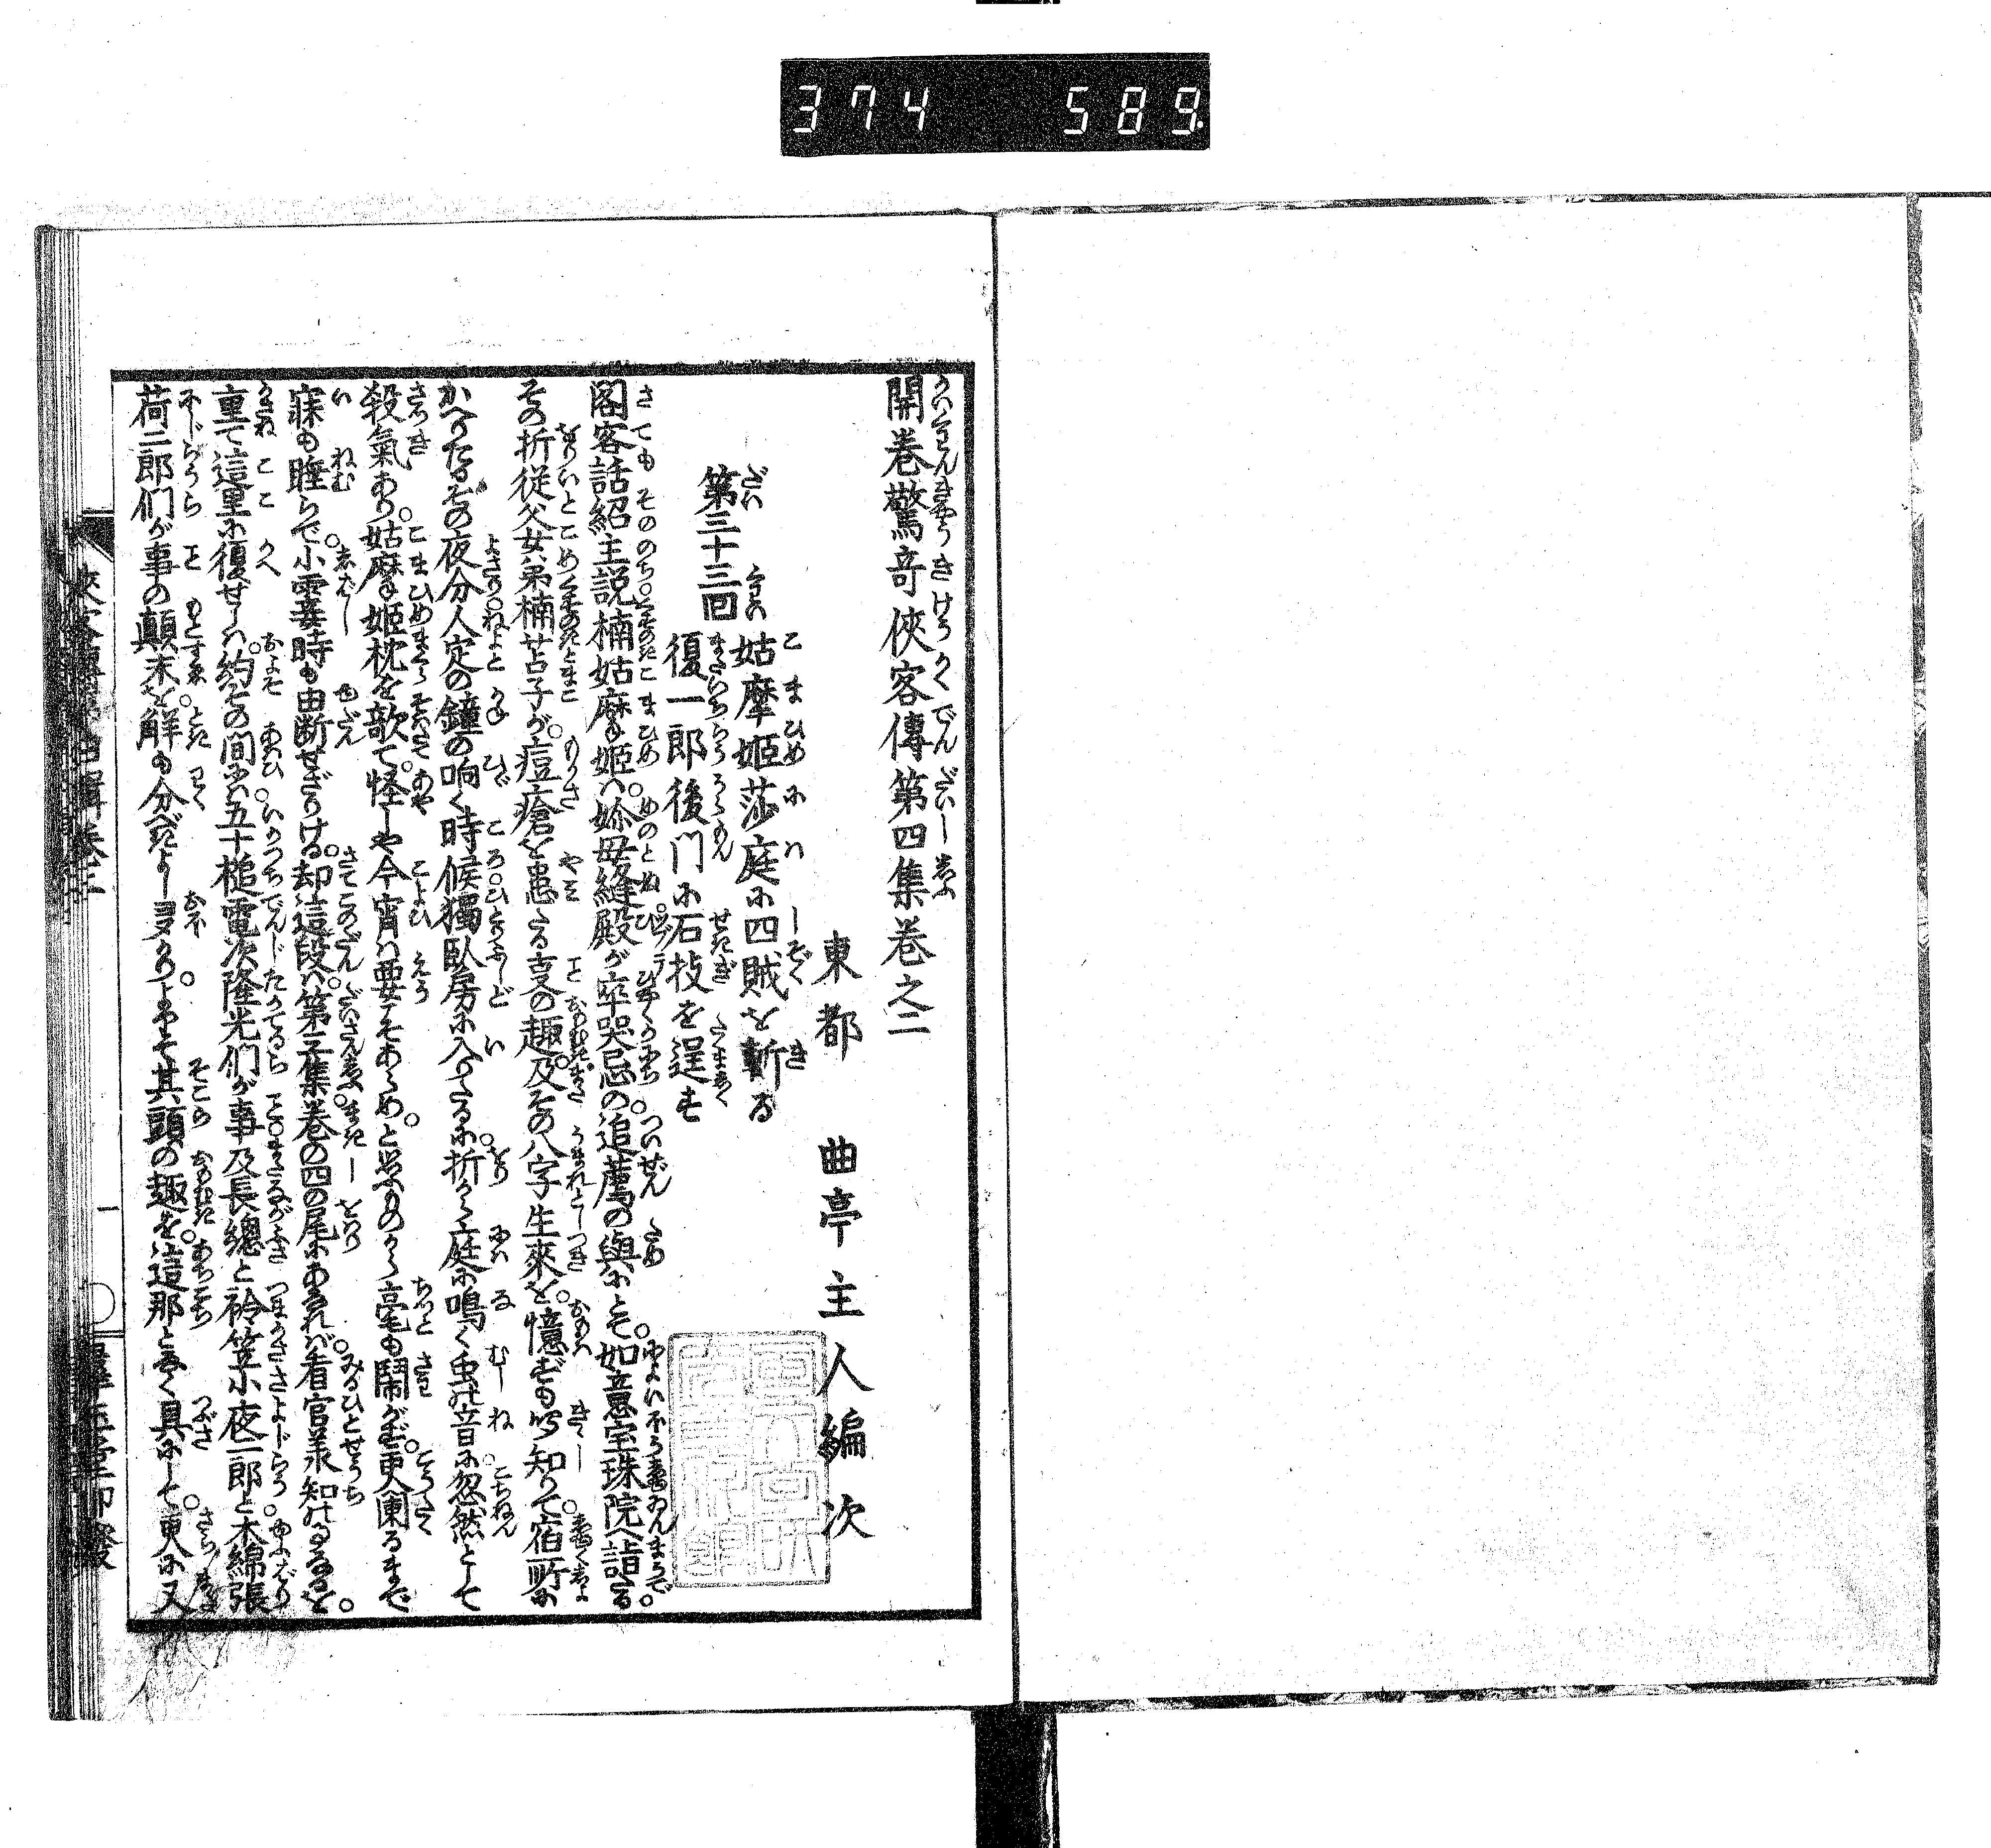 374 589
開巻驚奇俠客傳第四集巻之二
東都 曲亭主人編次
第三十三回
姑摩姫莎庭に四賊を斬る
復一郎後門に石技を逞す
閣客話紹主説楠姑摩姫ハ。姊母縫殿が卒哭忌の追薦の與にとて。如意宝珠院へ詣る
その折従父女弟楠苫子が。痘瘡を患たる支の趣。及その八字生來を。憶ずも聞知りて宿所に
かへりたるその夜分人定の鐘の响く時候獨臥房に入りたるに。折から庭に鳴く虫の音に忽然として
殺氣あり。姑摩姫枕を欹て。怪しや今宵ハ要こそあらめ。と思ふものから毫も鬧がず。更闌るまで
寐も睡らで。小霎時も由断せざりける。却這段ハ。第三集巻の四の尾にあなれバ。看官羕知のるるを。
重て這里に復せしハ。約その間に。五十槌電次隆光們が事及長總と袊笠小夜二郎と木綿張
荷二郎們が事の顛末を。觧も分べたよしヨタりて。其頭の趣を。這那と具にして。更に又
一